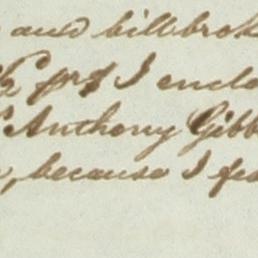 and billbrok
½ prs I enclo
Anthony Gibb
, because I fea